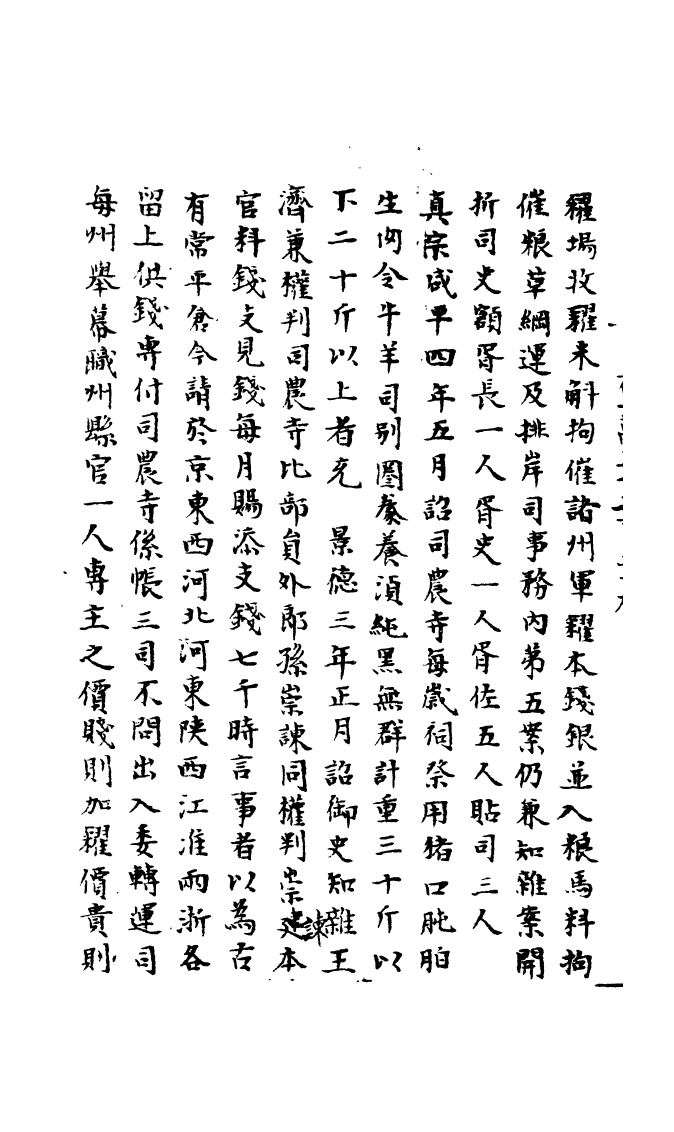 糴場收糴米斛拘催諸州軍糴本錢銀並入粮馬料拘
催粮草綱運及排岸司事務内第五案仍兼知雜案開
折司史額胥長一人胥史一人胥佐五人貼司三人
真宗咸平四年五月詔司農寺每歲祠祭用猪口肫胉
生向令牛羊司别圈豢養湏純黑無群計重三十斤以
下二十斤以上者充　景德三年正月詔御史知雜王
濟兼權判司農寺比部員外郎孫崇諫同權判崇諫本
官料錢支見錢每月賜添支錢七千時言事者以為古
有常平倉今請於京東西河北河東陝西江淮兩浙各
留上供錢専付司農寺係帳三司不問出入委轉運司
每州舉幕職州縣官一人専主之價賤則加糴價貴則